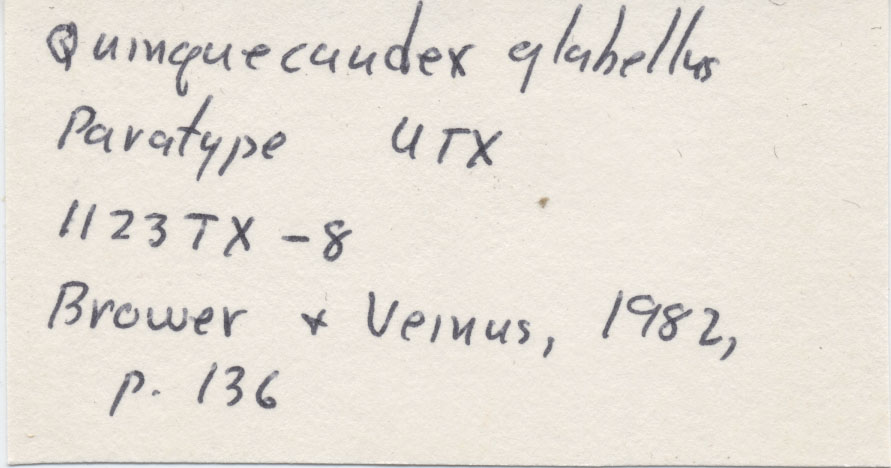 Quinquecaudex glabellus
Paratype UTX
1123TX-8
Brower + Veinus, 1982,
p. 136